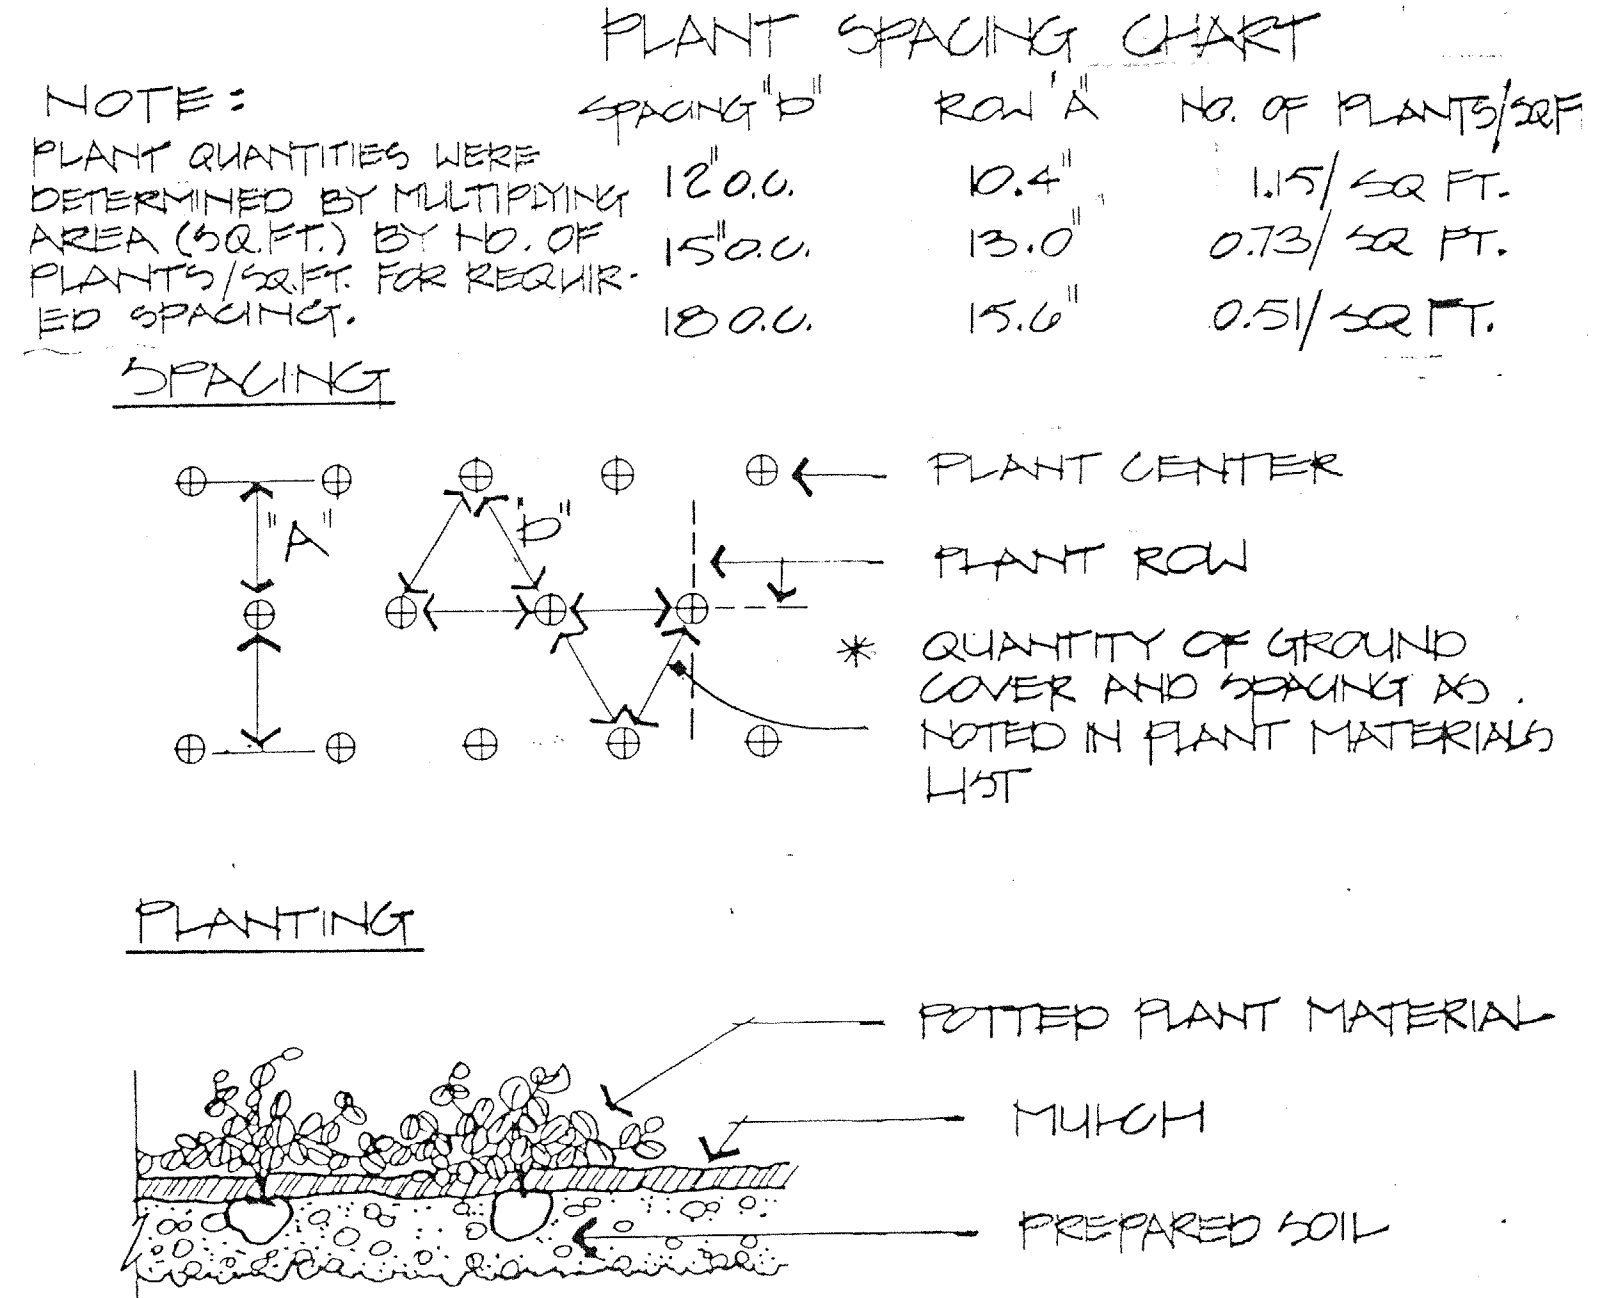 PLANT SPACING CHART
NOTE:
PLANT QUANTITIES WERE
DETERMINED BY MULTIPLYING
AREA (SQ.FT.) BY NO. OF
PLANTS/SQ.FT. FOR REQUIR-
ED SPACING.
SPACING "D" ROW "A" NO. OF PLANTS/SQ.F
12" O.C. 10.4" 1.15/ SQ FT.
15" O.C. 13.0" 0.73/ SQ FT.
18 O.C. 15.6" 0.51/ SQ FT.
SPACING
"A"
"D"
PLANT CENTER
PLANT ROW
* QUANTITY OF GROUND
COVER AND SPACING AS
NOTED IN PLANT MATERIALS
LIST
PLANTING
POTTED PLANT MATERIAL
MULCH
PREPARED SOIL